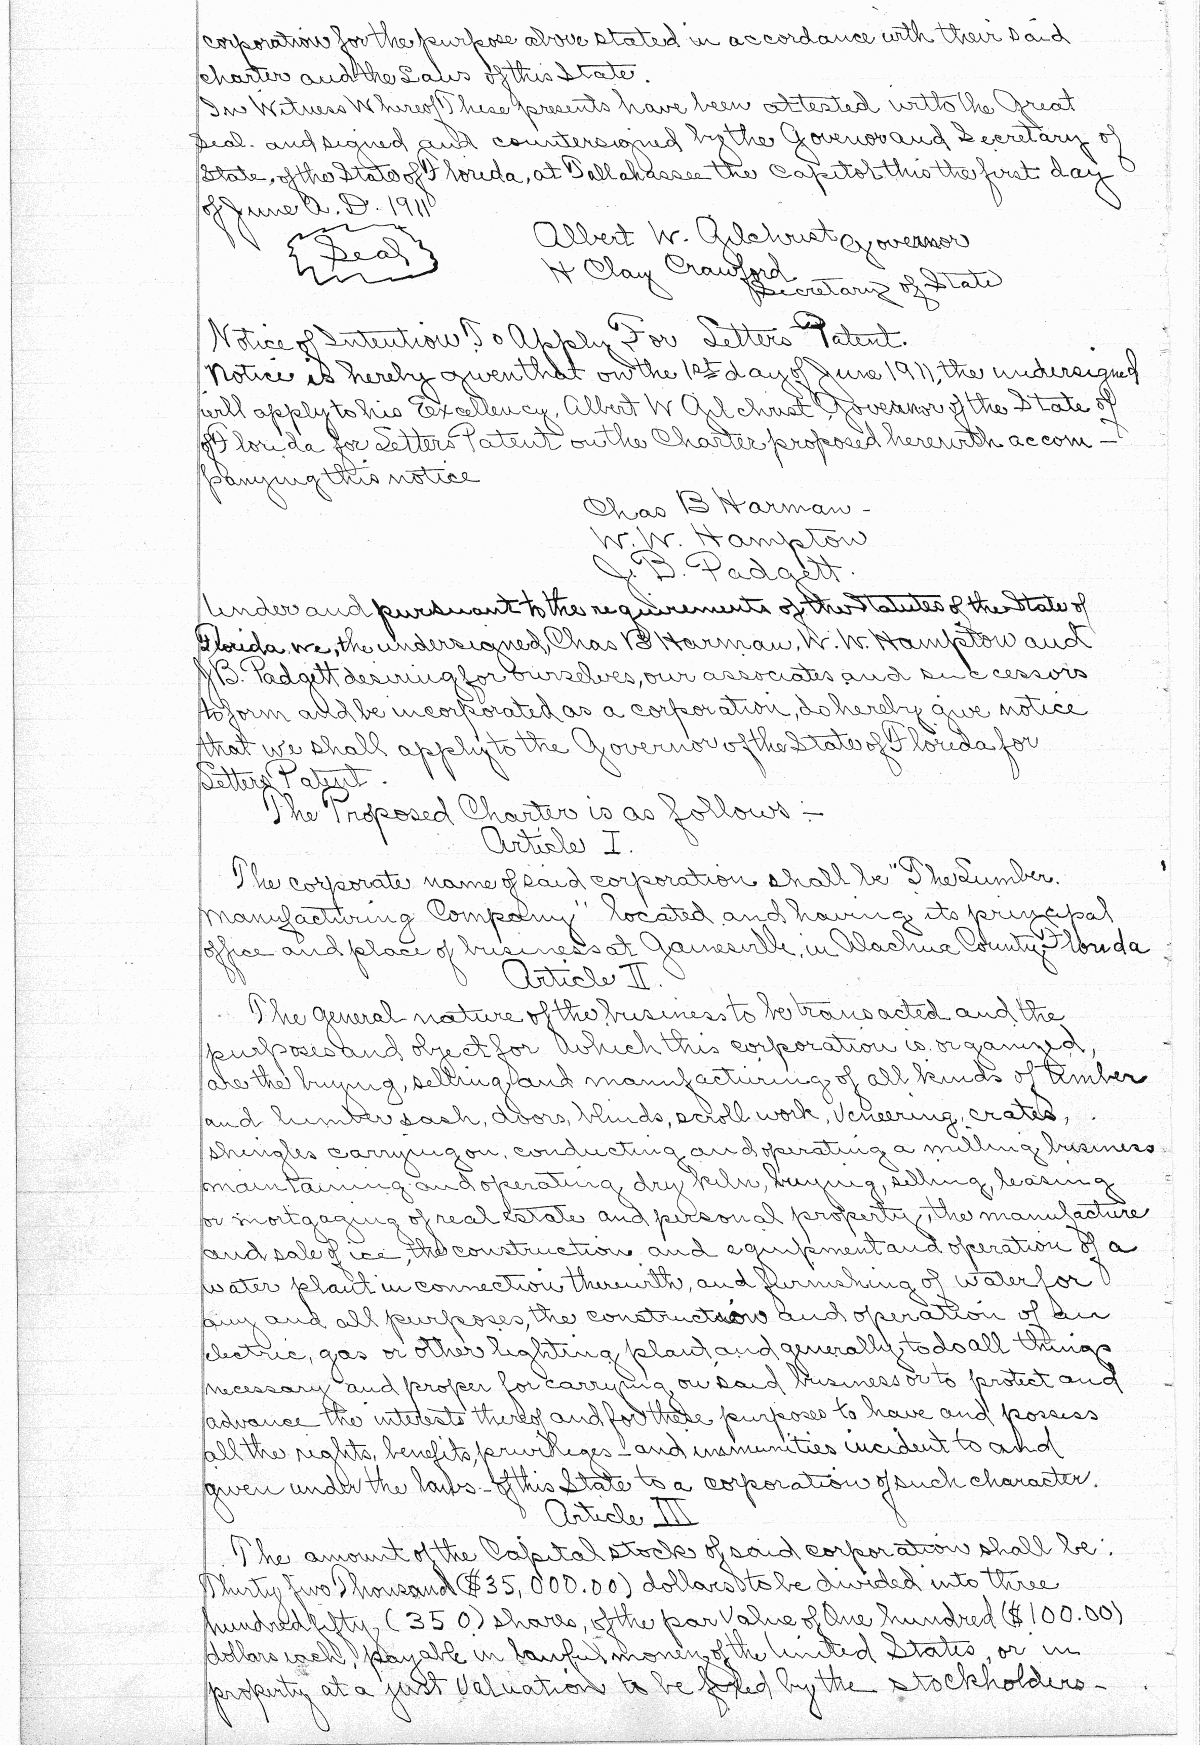 corporation for the purpose above stated in accordance with their said
charter and the Laws of this State.
In Witness Whereof These presents have been attested with the Great
Seal. and signed and countersigned by the Govenor and Secretary of
State, of the State of Florida, at Tallahassee the Capitol this the first day
of June A. D. 1911
Seal
Albert W. Gilchrist Governor
H Clay Crawford
Secretary of State
Notice of Intention To Apply For Letters Patent.
Notice is hereby given that on the 1st day of June 1911, the undersigned
will apply to his Excellency, Albert W Gilchrist Governor of the State of
of Florida for Letters Patent on the Charter proposed herewith accom-
panying this notice
Chas B Harman -
W. W. Hampton
J. B. Padgett.
Under and pursuant to the requirements of the Statutes of the State of
Florida, we, the undersigned, Chas B Harman, W. W. Hampton and
J B. Padgett desiring for ourselves, our associates and successors
to form and be incorporated as a corporation, do hereby give notice
that we shall apply to the Governor of the State of Florida for
Letters Patent.
The Proposed Charter is as follows :-
Article I.
The corporate name of said corporation shall be "The Lumber.
Manufacturing Company" located and having its principal
office and place of business at Gainesville, in Alachua County, Florida
Article II.
The general nature of the business to be transacted and the
purposes and object for which this corporation is organized,
are the buying, selling and manufacturing of all kinds of timber
and lumber sash, doors, blinds, scroll work, veneering, crates,
shingles carrying on, conducting and operating a milling business
maintaining and operating dry kiln, buying, selling, leasing
or mortgaging of real estate and personal property, the manufacture
and sale of ice, the construction and equipment and operation of a
water plant in connection therewith, and furnishing of water for
any and all purposes, the construction and operation of an
electric, gas or other lighting plant and generally to do all things
necessary and proper for carrying on said business or to protect and
advance the interests thereof and for these purposes to have and possess
all the rights, benefits, privileges - and immunities incident to and
given under the laws - of this State to a corporation of such character.
Article III
The amount of the Capital stock of said corporation shall be:
Thirty Thousand ($35,000.00) dollars to be divided into three
hundred fifty, (350) shares, of the par value of One hundred ($100.00)
dollars each, payable in lawful money of the United States, or in
property at a just valuation to be fixed by the stockholders -